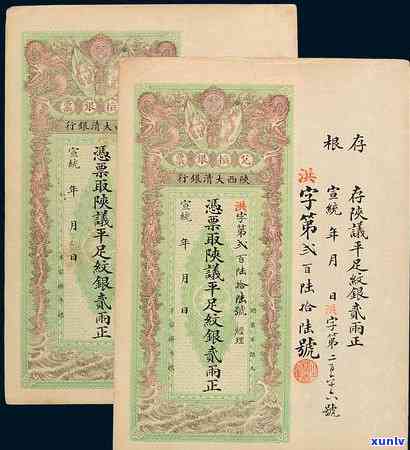 存根
存陝議平足紋銀貳兩正
宣統 年 月 日洪字第二百六十六號
洪字第弍百陸拾陸號
兌換銀票
陝西大清銀行
洪字第弍百陸拾陸號 經理
憑票取陝議平足紋銀貳兩正
宣統 年 月 日
換銀票
西大清銀行
憑票取陝議平足紋銀貳兩正
宣統 年 月 日
xunlv